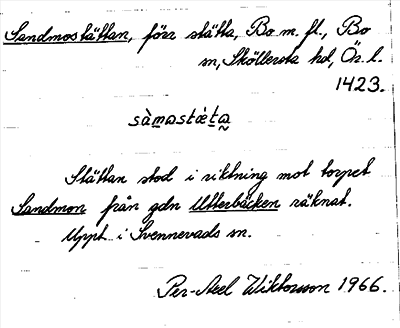 Sandmostättan, förr stätta, Bo m. fl., Bo
sn, Sköllersta hd, Ör. l.
1423.
sàmastǽta
Stättan stod i riktning mot torpet
Sandmon från gdn Utterbäcken räknat.
Uppt. i Svennevads sn.
Per-Axel Wiktorsson 1966.